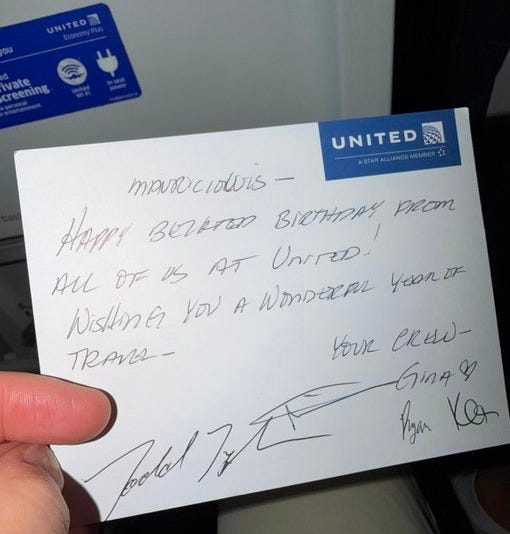 UNITED
Economy Plus
you
Private
Screening
United
Wi-Fi
In-seat
power
UNITED
A STAR ALLIANCE MEMBER
MAURICIOLUIS –
HAPPY BELATED BIRTHDAY FROM
ALL OF US AT UNITED!
WISHING YOU A WONDERFUL YEAR OF
TRAVEL –
YOUR CREW –
GINA
Ryan
Todd